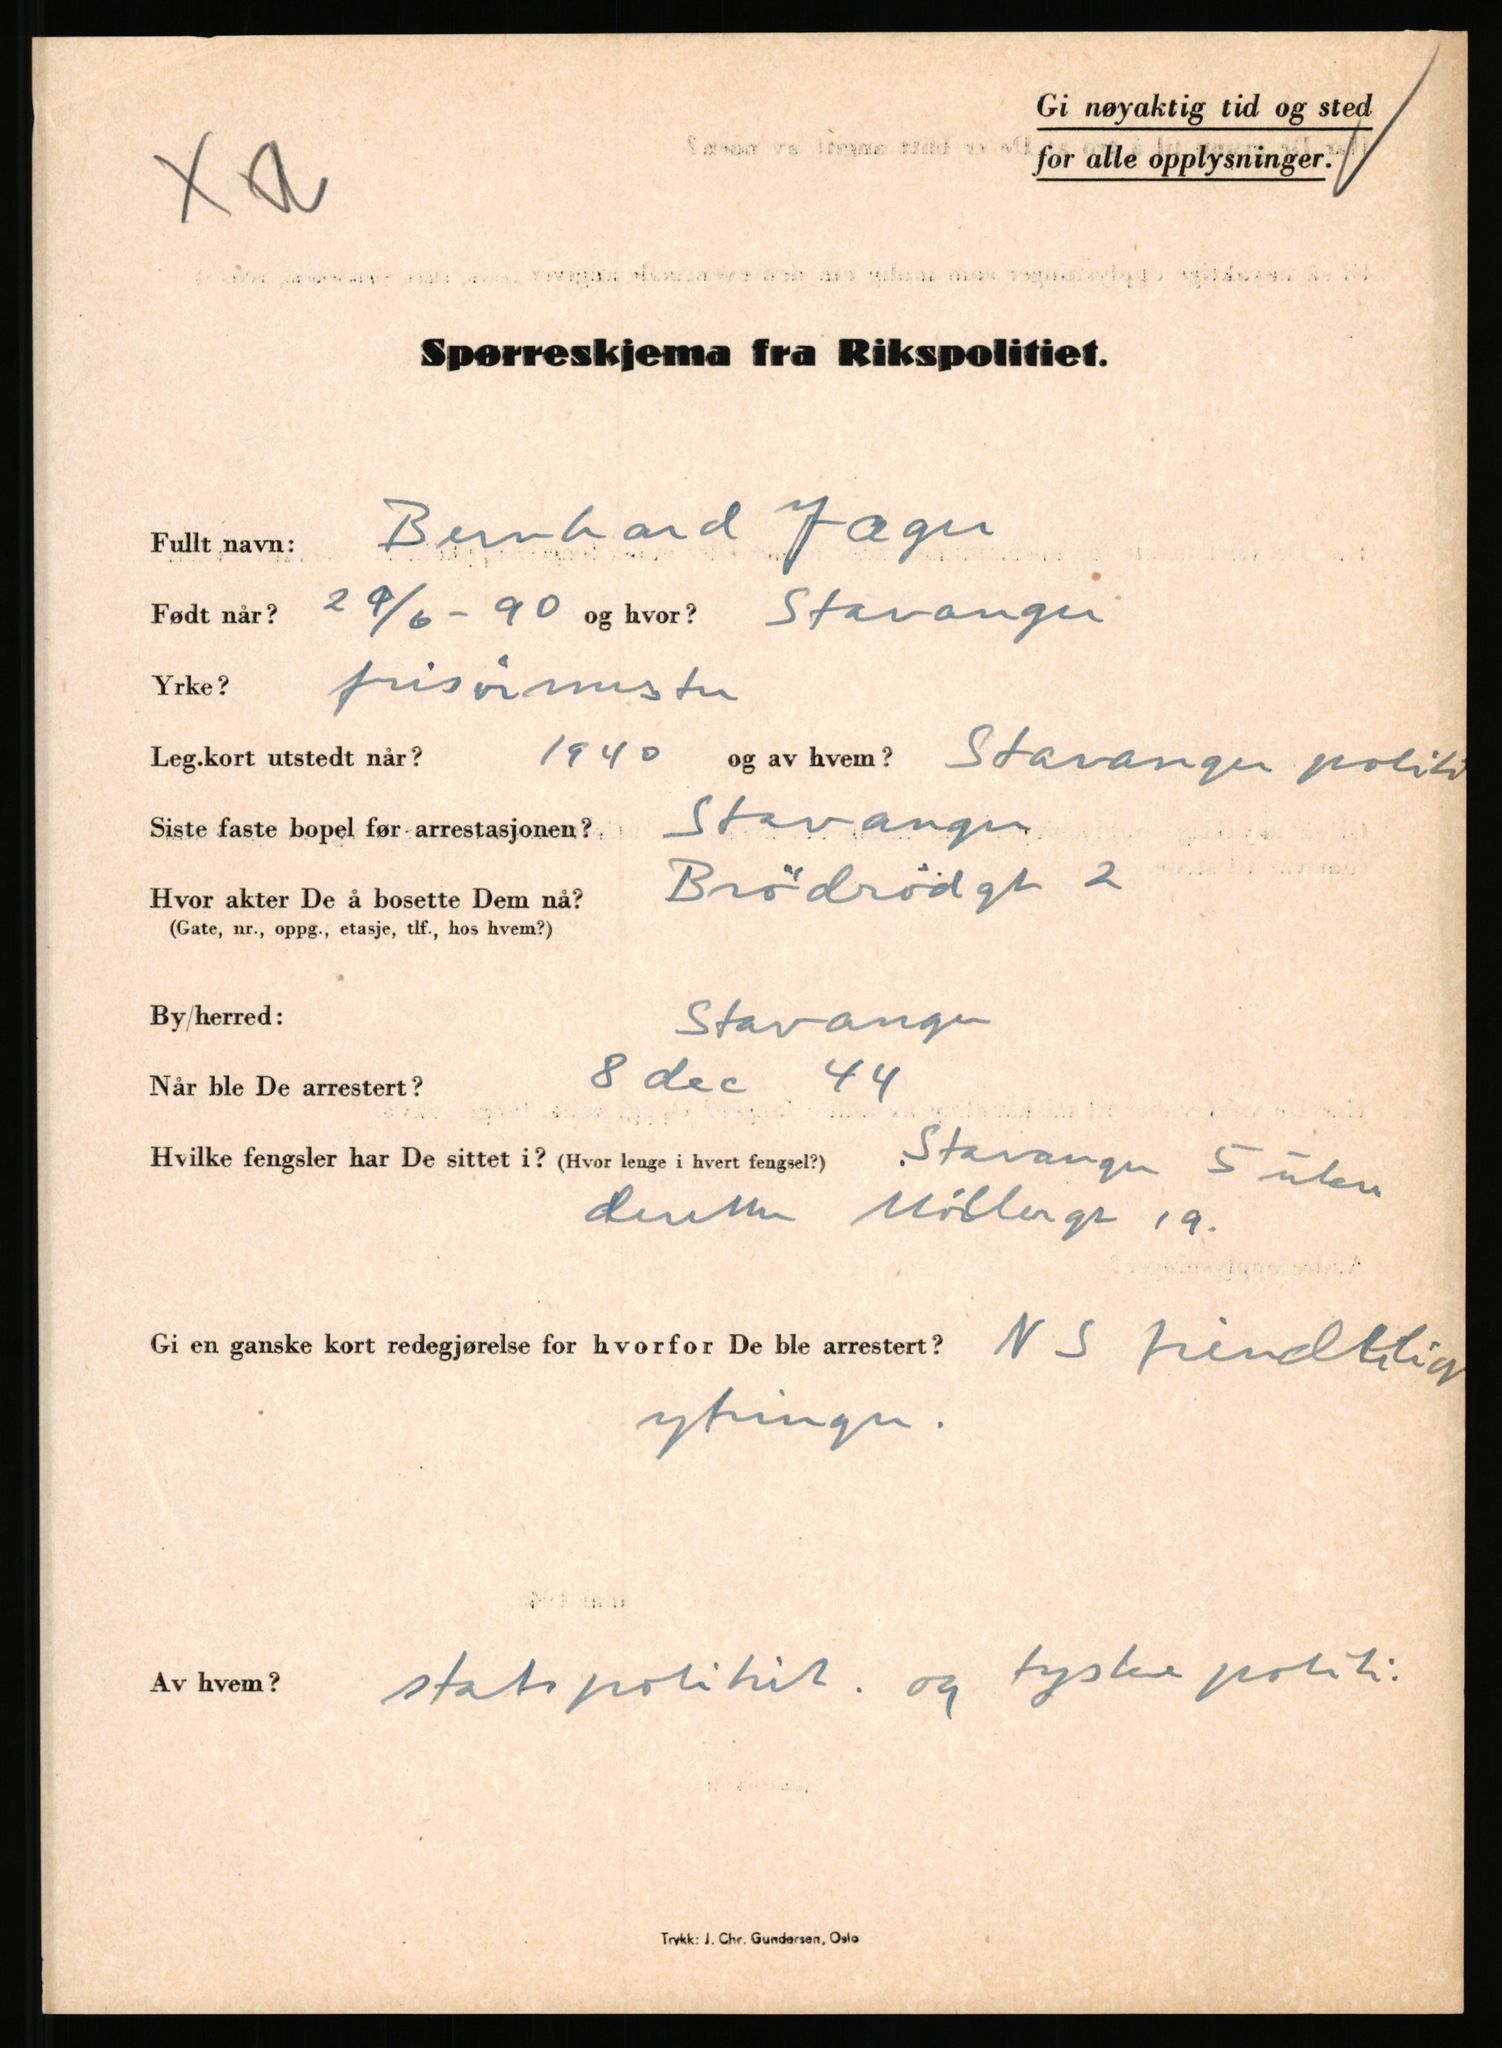 Gi nøyaktig tid og sted
for alle opplysninger.
X
Spørreskjema fra Rikspolitiet.
Fullt navn: Bernhard Jæger
Født når? 29/6 - 90 og hvor? Stavanger
Yrke? frisørmester
Leg.kort utstedt når? 1940 og av hvem? Stavanger politi
Siste faste bopel før arrestasjonen? Stavanger
Hvor akter De å bosette Dem nå? 2
(Gate, nr., oppg., etasje, tlf., hos hvem?)
By/herred: Stavanger
Når ble De arrestert? 8 dec 44
Hvilke fengsler har De sittet i? (Hvor lenge i hvert fengsel?) Stavanger 5 uker
deretter Møllergt 19.
Gi en ganske kort redegjørelse for hvorfor De ble arrestert? N S fiendtlig
ytringer.
Av hvem? statspolitiet. og tyske politi.
Trykk: J. Chr. Gundersen, Oslo